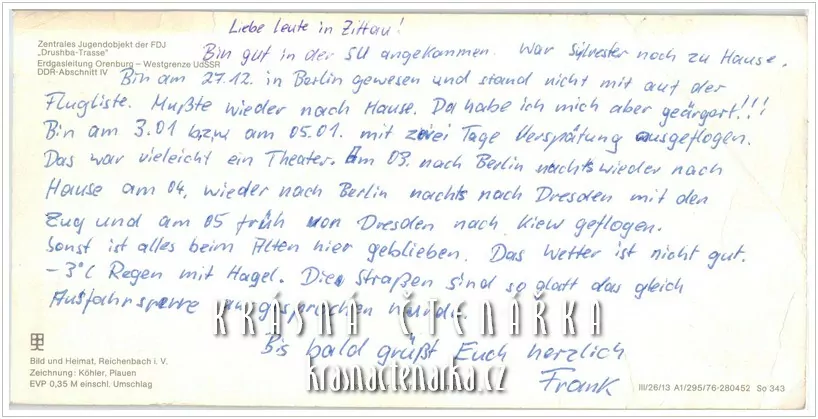 Liebe Leute in Zittau!
Zentrales Jugendobjekt der FDJ
„Drushba-Trasse"
Erdgasleitung Orenburg – Westgrenze UdSSR
DDR-Abschnitt IV
Bin gut in der SU angekommen. War Sylvester noch zu Hause.
Bin am 27.12. in Berlin gewesen und stand nicht mit auf der
Flugliste. Mußte wieder nach Hause. Da habe ich mich aber geärgert!!!
Bin am 3.01 bzw am 05.01. mit zwei Tage Verspätung ausgeflogen.
Das war vieleicht ein Theater. Am 03. nach Berlin nachts wieder nach
Hause am 04. wieder nach Berlin nachts nach Dresden mit den
Zug und am 05 früh von Dresden nach Kiew geflogen.
Sonst ist alles beim Alten hier geblieben. Das Wetter ist nicht gut.
-3°C Regen mit Hagel. Die Straßen sind so glatt das gleich
Ausfahrsperre ausgesprochen wurde.
KRÁSNÁ ČTENÁŘKA
Bis bald grüßt Euch herzlich
Frank
krasnactenarka.cz
Bild und Heimat, Reichenbach i. V.
Zeichnung: Köhler, Plauen
EVP 0,35 M einschl. Umschlag
III/26/13 A1/295/76-280452 So 343